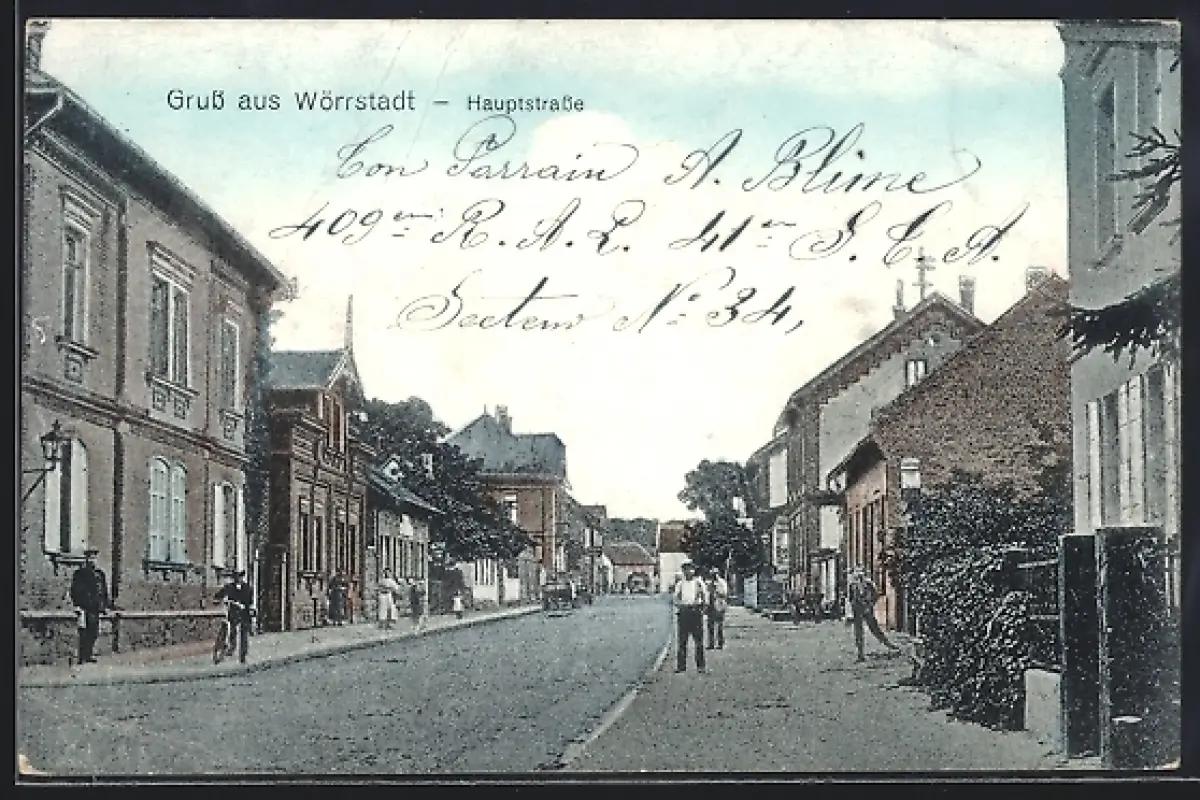 Gruß aus Wörrstadt – Hauptstraße
Ton Parrain A. Blime
409ème R. A. L. 41ème S. C. A.
Secteur No 34,